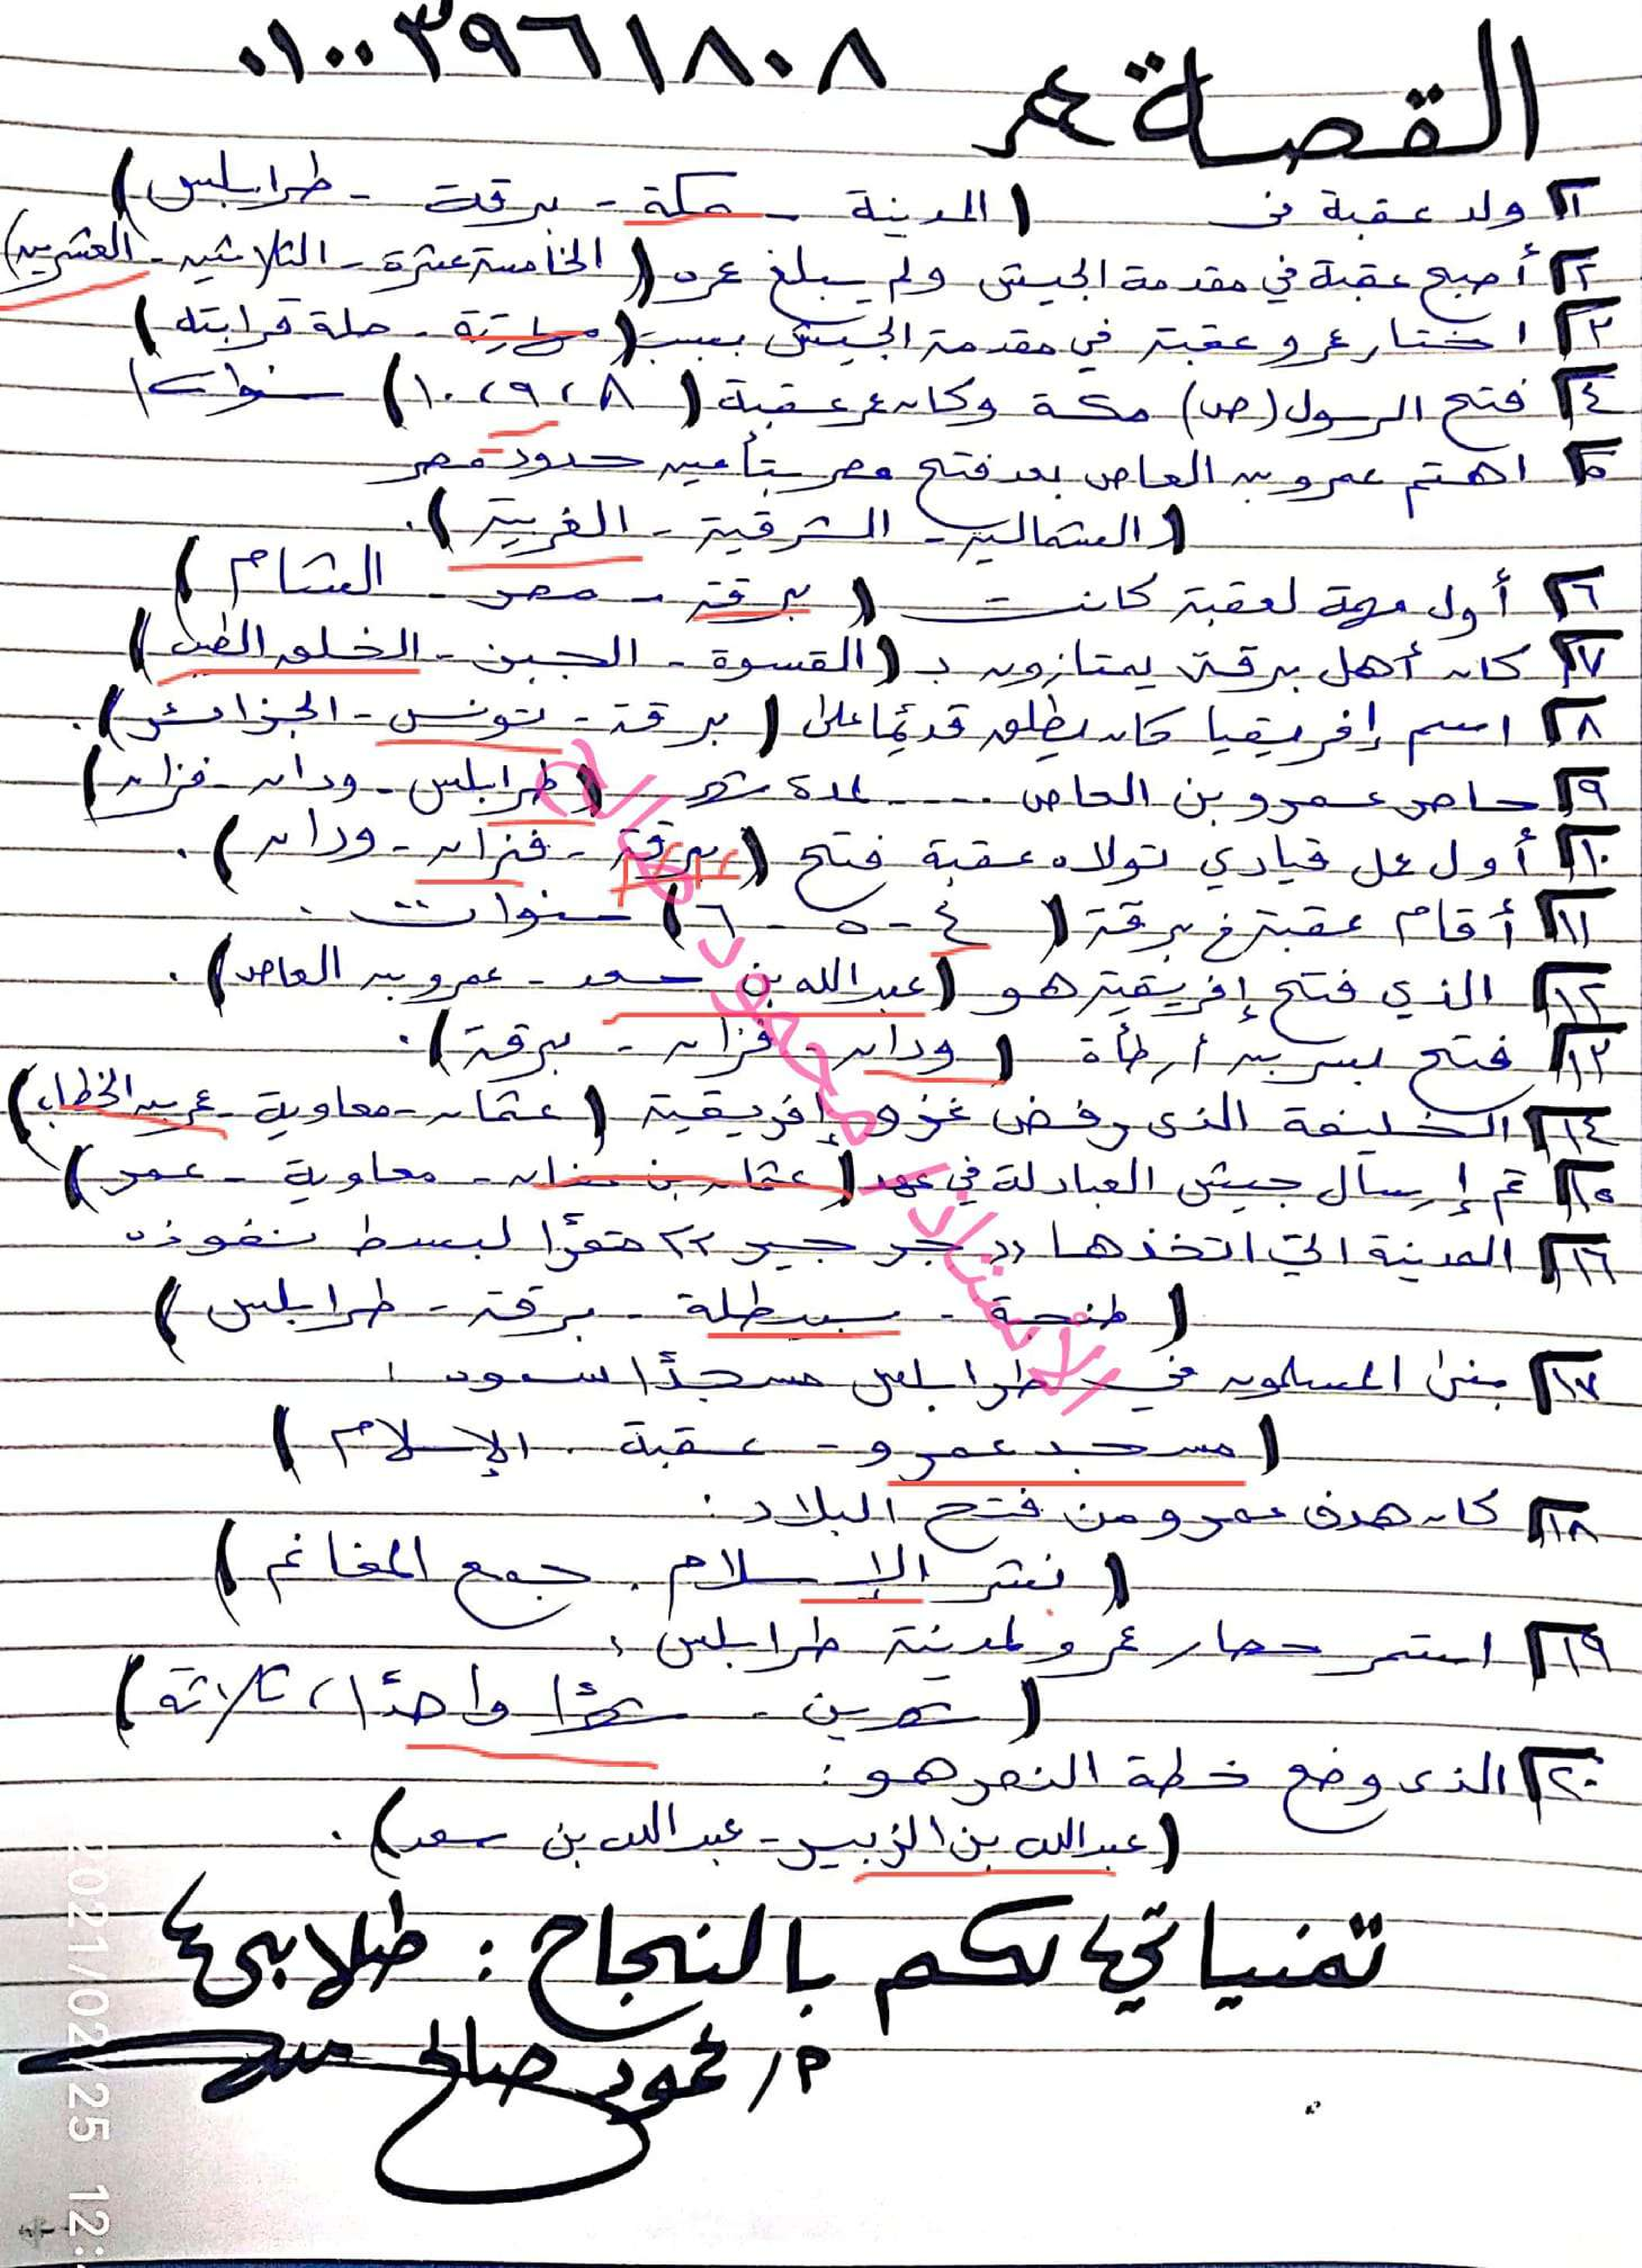 ٠١٠٠٣٩٦١٨٠٨
القصة عم
١ ولد عقبة في (المدينة - مكة - برقة - طرابلس)
٢ أصبح عقبة في مقدمة الجيش ولم يبلغ عمره (الخامسة عشرة - الثلاثين - العشرين)
٣ اختار عمرو عقبة في مقدمة الجيش بسبب (مهارته - صلة قرابته)
٤ فتح الرسول (ص) مكة وكان عمر عقبة (٨، ٩، ١٠) سنوات
٥ اهتم عمرو بن العاص بعد فتح مصر بتأمين حدود مصر
(الشمالية - الشرقية - الغربية).
٦ أول مهمة لعقبة كانت (برقة - مصر - الشام)
٧ كان أهل برقة يمتازون بـ (القسوة - الجبن - الخلق الطيب)
٨ اسم إفريقيا كان يطلق قديمًا على (برقة - تونس - الجزائر).
٩ حاصر عمرو بن العاص ..... لمدة شهر (طرابلس - ودان - فزان)
١٠ أول عمل قيادي تولاه عقبة فتح (برقة - فزان - ودان).
١١ أقام عقبة في برقة (٤ - ٥ - ٦) سنوات.
١٢ الذي فتح إفريقية هو (عبد الله بن سعد - عمرو بن العاص).
١٣ فتح بسر بن أرطأة (ودان - فزان - برقة).
١٤ الخليفة الذى رفض غزو إفريقية (عثمان - معاوية - عمر بن الخطاب)
١٥ تم إرسال جيش العبادلة في عهد (عثمان بن عفان - معاوية - عمر)
١٦ المدينة التي اتخذها "جرجير" مقرًا لبسط نفوذه
(طنجة - سبيطلة - برقة - طرابلس)
١٧ بنى المسلمون في طرابلس مسجدًا سموه:
(مسجد عمرو - عقبة - الإسلام)
١٨ كان هدف عمرو من فتح البلاد:
(نشر الإسلام - جمع المغانم)
١٩ استمر حصار عمرو لمدينة طرابلس:
(شهرين - شهرًا واحدًا، ثلاثة)
٢٠ الذى وضع خطة النصر هو:
(عبد الله بن الزبير - عبد الله بن سعد).
تمنياتي لكم بالنجاح: طلابي
م/ محمود صالح
الأستاذ محمود صالح
2021/02/25 12: